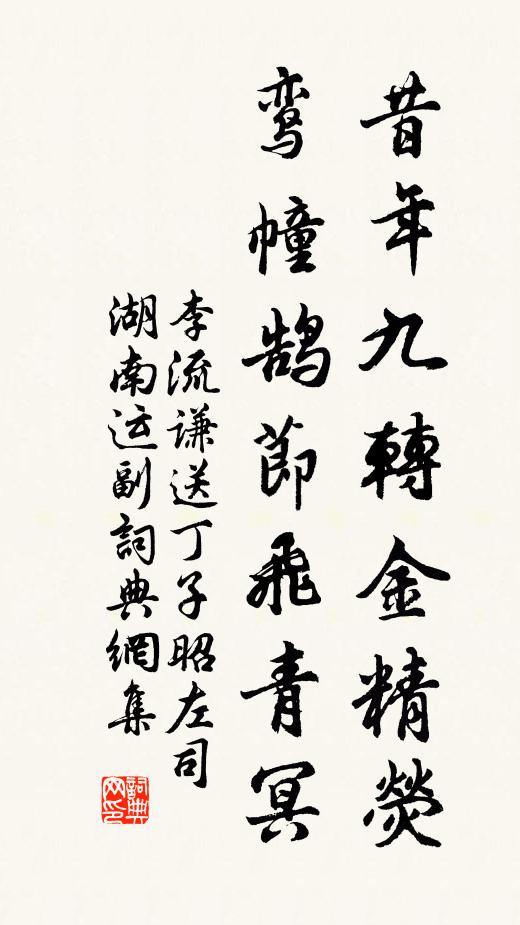 昔年九轉金精熒
鸾幢鹄節飛青冥
李流谦送丁子昭左司
湖南运副詞典網集
詞典网印